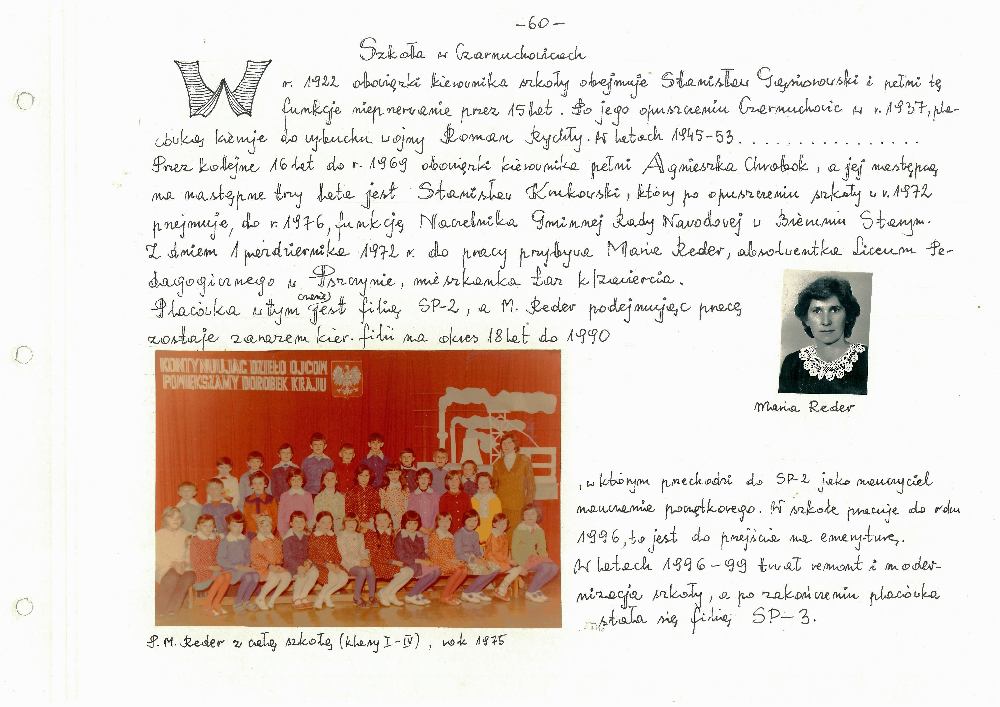 -60-
Szkoła w Czarnuchowicach
W r. 1922 obowiązki kierownika szkoły obejmuje Stanisław Gąsiorowski i pełni tę
funkcje nieprzerwanie przez 15 lat. Po jego opuszczeniu Czarnuchowic w r. 1937, pla-
cówką kieruje do wybuchu wojny Roman Rychły. W latach 1945-53................
Przez kolejne 16 lat do r. 1969 obowiązki kierownika pełni Agnieszka Chrobok, a jej następcą
na następne trzy lata jest Stanisław Krukowski, który po opuszczeniu szkoły w r. 1972
przejmuje, do r. 1976, funkcję Naczelnika Gminnej Rady Narodowej w Bieruniu Starym.
Z dniem 1 października 1972 r. do pracy przybywa Maria Reder, absolwentka Liceum Pe-
dagogicznego w Pszczynie, mieszkanka Łaz k/Zawiercia.
Placówka w tym czasie jest filią SP-2, a M. Reder podejmując pracę
zostaje zarazem kier. filii na okres 18 lat do 1990
KONTYNUUJĄC DZIEŁO OJCÓW
POMIĘKSZAMY DOROBEK KRAJU
Maria Reder
, w którym przechodzi do SP-2 jako nauczyciel
nauczania początkowego. W szkole pracuje do roku
1996, to jest do przejścia na emeryturę.
W latach 1996-99 trwał remont i moder-
nizacja szkoły, a po zakończeniu placówka
stała się filią SP-3.
P. M. Reder z całą szkołą (klasy I-IV), rok 1975